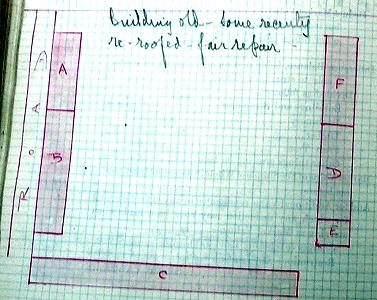 Building old - Some recently
re-roofed - fair repair -
A
F
B
D
E
C
ROAD